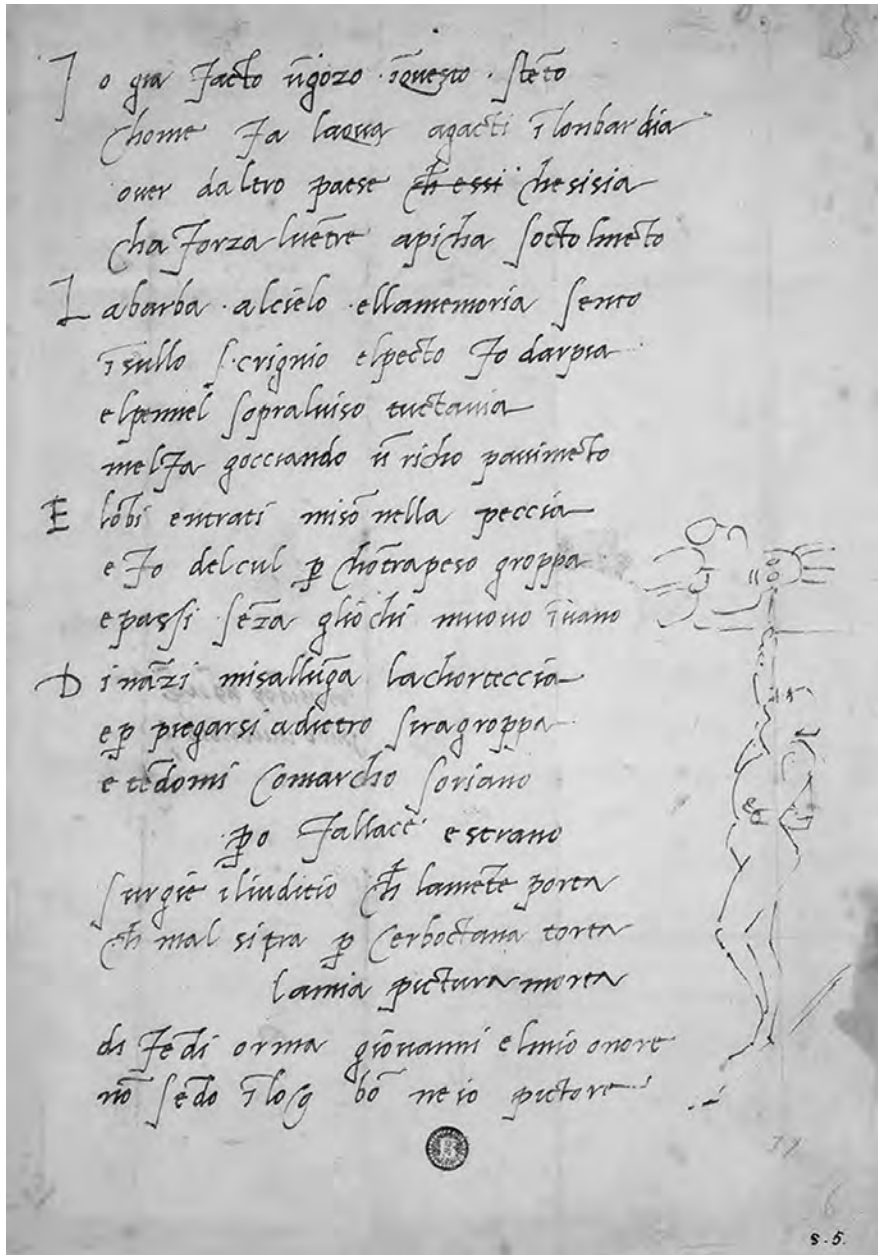 I o gia facto ūgozo īquesto stēto
chome fa lacqua agacti ī lonbardia
over daltro paese ch̄ essi chesisia
cha forza luētre apicha socto lmēto
L abarba alcielo ellamemoria sento
īsullo scrignio elpecto fo darpia
elpennel sopraluiso tuctavia
melfa gocciando ū richo pavimēto
E lōbi entrati misō nella peccia
e fo delcul p̱ chōtrapeso groppa
epassi sēza gliochi muovo īvano
D ināzi misallūga lachorteccia
ep̱ piegarsi adietro siragroppa
e tēdomi comarcho soriano
p̱o fallace estrano
surgie iliuditio ch̄ lamēte porta
ch̄ mal si tra p̱ cerboctana torta
lamia pictura morta
di fēdi orma giovanni elmio onore
nō sēdo ī loco bō ne io pictore
39
6
s. 5.